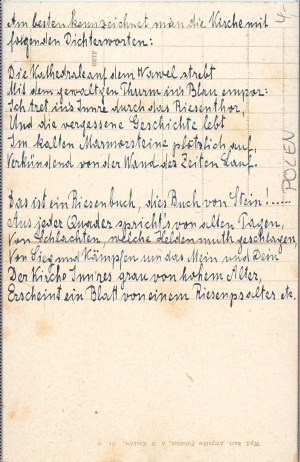 Am besten kennzeichnet man die Kirche mit
folgenden Dichterworten:
Die Kathedrale auf dem Wawel strebt
Mit dem gewalt'gen Thurm ins Blau empor:
Ich tret ins Innre durch das Riesenthor,
Und die vergessene Geschichte lebt
Im kalten Marmorsteine plötzlich auf,
Verkündend von der Wand des Zeiten Lauf.
Das ist ein Riesenbuch, dies Buch von Stein!.....
Aus jeder Quader spricht's von alten Tagen,
Von Schlachten, welche Heldenmuth geschlagen
Von Sieg und Kämpfen um das Mein und Dein
Der Kirche Innres grau von hohem Alter,
Erscheint ein Blatt von einem Riesenpsalter etc.
POLEN
4.-